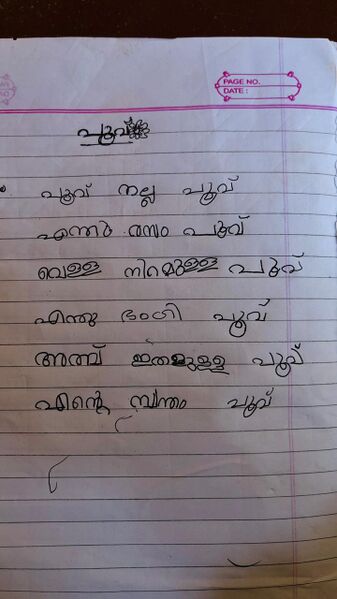 PAGE NO.
DATE :
പൂവ്
പൂവ് നല്ല പൂവ്
എന്തു രസം പൂവ്
വെള്ള നിറമുള്ള പൂവ്
എന്തു ഭംഗി പൂവ്
അഞ്ച് ഇതളുള്ള പൂവ്
എന്റെ സ്വന്തം പൂവ്